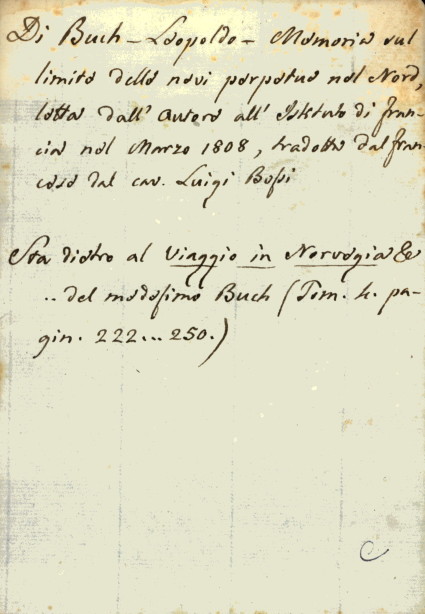 Di Buch - Leopoldo - Memoria sul
limite delle nevi perpetue nel Nord,
letta dall' autore all' Istituto di Fran-
cia nel Marzo 1808, tradotta dal fran-
cese dal cav. Luigi Bossi
Sta dietro al Viaggio in Norvegia &
.. del medesimo Buch (Tom. 4. pa-
gin. 222... 250.)
C